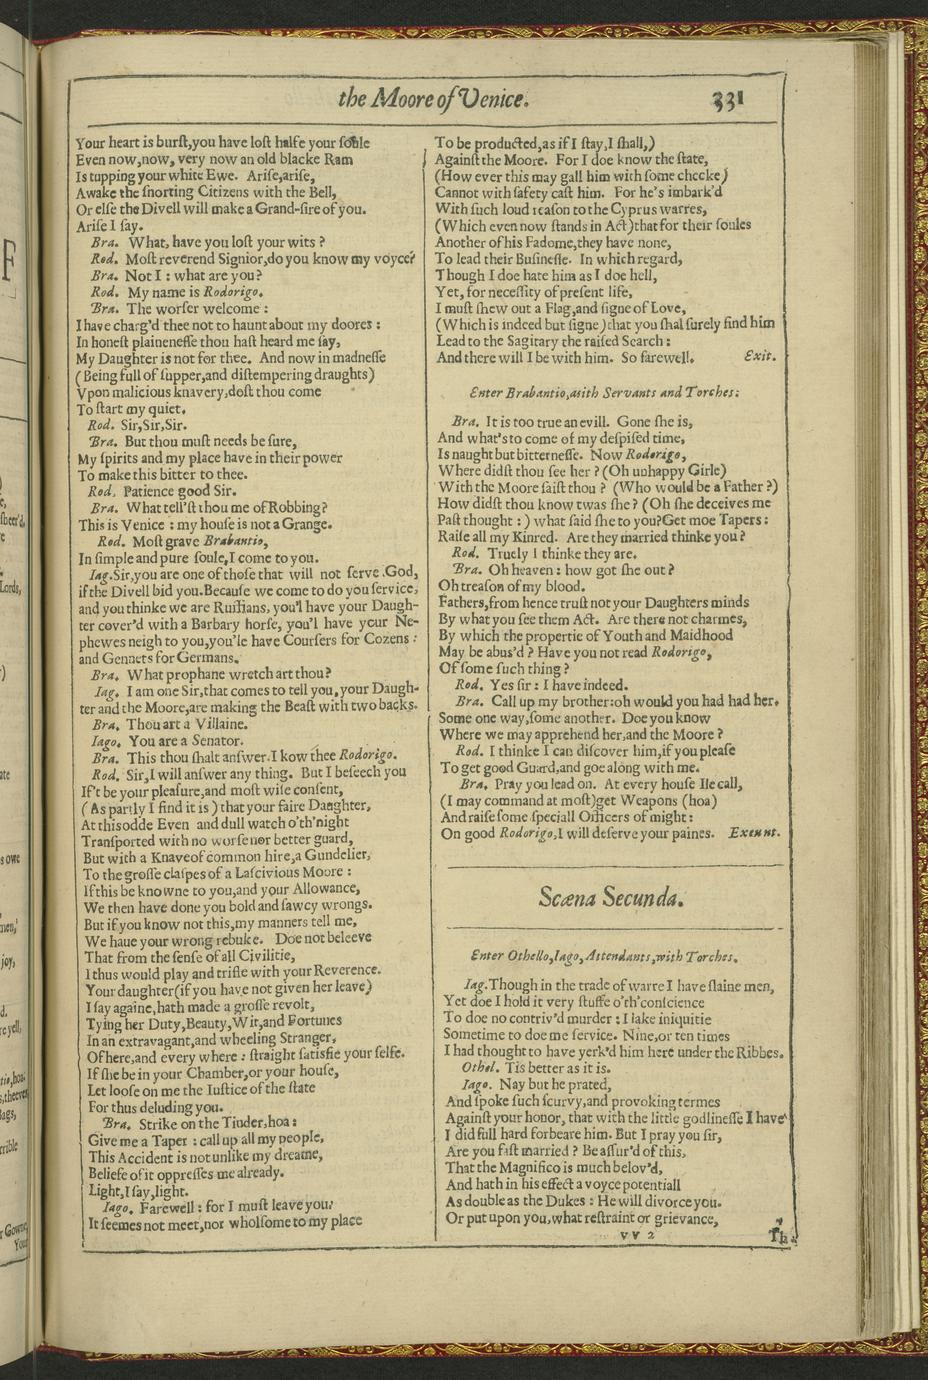 the Moore of Venice. 331
Your heart is burſt, you have loſt halfe your ſoule
Even now, now, very now an old blacke Ram
Is tupping your white Ewe. Ariſe, ariſe,
Awake the ſnorting Citizens with the Bell,
Or elſe the Divell will make a Grand-ſire of you.
Ariſe I ſay.
Bra. What, have you loſt your wits?
Rod. Moſt reverend Signior, do you know my voyce?
Bra. Not I : what are you?
Rod. My name is Rodorigo.
Bra. The worſer welcome :
I have charg'd thee not to haunt about my doores :
In honeſt plaineneſſe thou haſt heard me ſay,
My Daughter is not for thee. And now in madneſſe
(Being full of ſupper, and diſtempering draughts)
Vpon malicious knavery, doſt thou come
To ſtart my quiet.
Rod. Sir, Sir, Sir.
Bra. But thou muſt needs be ſure,
My ſpirits and my place have in their power
To make this bitter to thee.
Rod. Patience good Sir.
Bra. What tell'ſt thou me of Robbing?
This is Venice : my houſe is not a Grange.
Rod. Moſt grave Brabantio,
In ſimple and pure ſoule, I come to you.
Iag. Sir, you are one of thoſe that will not ſerve God,
if the Divell bid you. Becauſe we come to do you ſervice,
and you thinke we are Ruffians, you'l have your Daugh-
ter cover'd with a Barbary horſe, you'l have your Ne-
phewes neigh to you, you'le have Courſers for Cozens :
and Gennets for Germans.
Bra. What prophane wretch art thou?
Iag. I am one Sir, that comes to tell you, your Daugh-
ter and the Moore, are making the Beaſt with two backs.
Bra. Thou art a Villaine.
Iago. You are a Senator.
Bra. This thou ſhalt anſwer. I kow thee Rodorigo.
Rod. Sir, I will anſwer any thing. But I beſeech you
If't be your pleaſure, and moſt wiſe conſent,
(As partly I find it is) that your faire Daughter,
At this odde Even and dull watch o'th'night
Tranſported with no worſe nor better guard,
But with a Knave of common hire, a Gundelier,
To the groſſe claſpes of a Laſcivious Moore :
If this be knowne to you, and your Allowance,
We then have done you bold and ſawcy wrongs.
But if you know not this, my manners tell me,
We haue your wrong rebuke. Doe not beleeve
That from the ſenſe of all Civilitie,
I thus would play and trifle with your Reverence.
Your daughter (if you have not given her leave)
I ſay againe, hath made a groſſe revolt,
Tying her Duty, Beauty, Wit, and Fortunes
In an extravagant, and wheeling Stranger,
Of here, and every where : ſtraight ſatisfie your ſelfe.
If ſhe be in your Chamber, or your houſe,
Let looſe on me the Iuſtice of the ſtate
For thus deluding you.
Bra. Strike on the Tinder, hoa :
Give me a Taper : call up all my people,
This Accident is not unlike my dreame,
Beliefe of it oppreſſes me already.
Light, I ſay, light.
Iago. Farewell : for I muſt leave you.
It ſeemes not meet, nor wholſome to my place
To be producted, as if I ſtay, I ſhall,)
Againſt the Moore. For I doe know the ſtate,
(How ever this may gall him with ſome checke)
Cannot with ſafety caſt him. For he's imbark'd
With ſuch loud reaſon to the Cyprus warres,
(Which even now ſtands in Act) that for their ſoules
Another of his Fadome, they have none,
To lead their Buſineſſe. In which regard,
Though I doe hate him as I doe hell,
Yet, for neceſſity of preſent life,
I muſt ſhew out a Flag, and ſigne of Love,
(Which is indeed but ſigne) that you ſhal ſurely find him
Lead to the Sagitary the raiſed Search :
And there will I be with him. So farewell. Exit.
Enter Brabantio, with Servants and Torches.
Bra. It is too true an evill. Gone ſhe is,
And what's to come of my deſpiſed time,
Is naught but bitterneſſe. Now Rodorigo,
Where didſt thou ſee her? (Oh unhappy Girle)
With the Moore ſaiſt thou? (Who would be a Father?)
How didſt thou know twas ſhe? (Oh ſhe deceives me
Paſt thought :) what ſaid ſhe to you? Get moe Tapers :
Raiſe all my Kinred. Are they married thinke you?
Rod. Truely I thinke they are.
Bra. Oh heaven : how got ſhe out?
Oh treaſon of my blood.
Fathers, from hence truſt not your Daughters minds
By what you ſee them Act. Are there not charmes,
By which the propertie of Youth and Maidhood
May be abus'd? Have you not read Rodorigo,
Of ſome ſuch thing?
Rod. Yes ſir : I have indeed.
Bra. Call up my brother : oh would you had had her.
Some one way, ſome another. Doe you know
Where we may apprehend her, and the Moore?
Rod. I thinke I can diſcover him, if you pleaſe
To get good Guard, and goe along with me.
Bra. Pray you lead on. At every houſe Ile call,
(I may command at moſt) get Weapons (hoa)
And raiſe ſome ſpeciall Officers of might :
On good Rodorigo, I will deſerve your paines. Exeunt.
Scæna Secunda.
Enter Othello, Iago, Attendants, with Torches.
Iag. Though in the trade of warre I have ſlaine men,
Yet doe I hold it very ſtuffe o'th'conſcience
To doe no contriv'd murder : I lake iniquitie
Sometime to doe me ſervice. Nine, or ten times
I had thought to have yerk'd him here under the Ribbes.
Othel. Tis better as it is.
Iago. Nay but he prated,
And ſpoke ſuch ſcurvy, and provoking termes
Againſt your honor, that with the little godlineſſe I have
I did full hard forbeare him. But I pray you ſir,
Are you faſt married? Be aſſur'd of this,
That the Magnifico is much belov'd,
And hath in his effect a voyce potentiall
As double as the Dukes : He will divorce you.
Or put upon you, what reſtraint or grievance,
VV 2